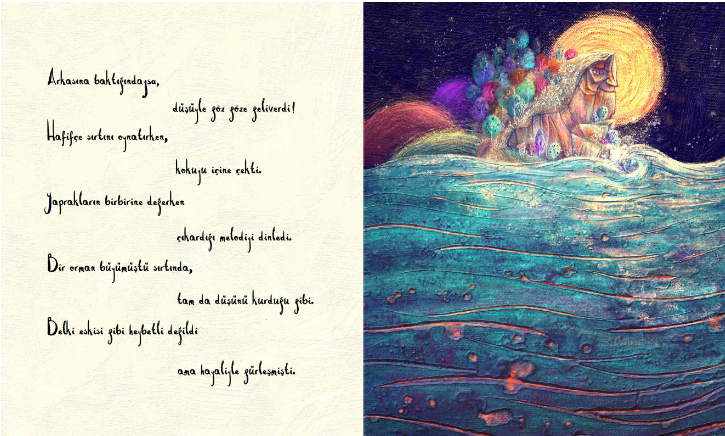 Arkasına baktığındaysa,
düşüyle göz göze geliverdi!
Hafifçe sırtını oynatırken,
kokuyu içine çekti.
Yaprakların birbirine değerken
çıkardığı melodiyi dinledi.
Bir orman büyümüştü sırtında,
tam da düşünü kurduğu gibi.
Belki eskisi gibi heybetli değildi
ama hayaliyle gürleşmişti.